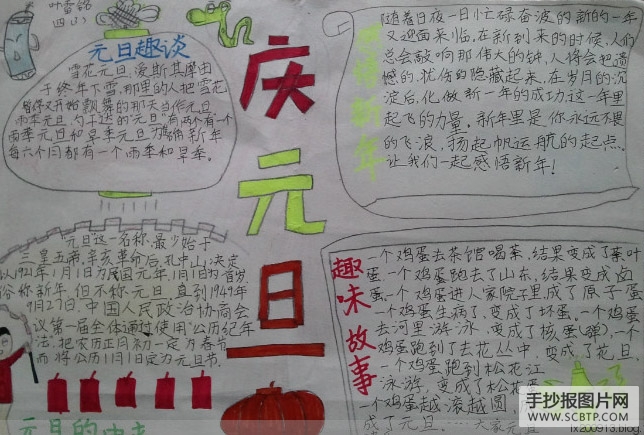 叶雪铭
四(2)
元旦趣谈
雪花元旦,爱斯基摩由
于终年下雪,那里的人把雪花
的那天当作元旦
雨季元旦,乌干达的"元旦"有两个有一个
雨季元旦和旱季元旦为
每六个月都有一个雨季和旱季。
庆元旦
感悟新年
随着日夜一日忙碌奋波的新的一年
又迎面来临,在新到来的时候,人们
总会敲响那伟大的钟,人将会把遗
憾的、忧伤的隐藏起来,在岁月的沉
淀后,化做新一年的成功这一年里
起飞的力量。新年里是你永远不畏
的飞浪,扬起帆运航的起点
让我们一起感悟新年!
元旦这一名称,最少始于
三皇五帝,辛亥革命后,孔中山决定
以1921年1月1日为民国元年,1月1日为首岁
俗称新年,但不称元旦 直到1949年
9月27日,中国人民政治协商会
议第一届全体通过使用"公历纪年
法,把农历正月初一定为春节
而将公历1月1日定为元旦节.
元旦的由来
趣味故事
一个鸡蛋去茶馆喝茶,结果变成了茶叶
蛋,一个鸡蛋跑去了山东,结果变成卤
蛋,一个鸡蛋进人家院子里成了原子蛋
一个鸡蛋生病了,变成了坏蛋,一个鸡蛋
去河里游泳,变成了核蛋(弹),一个
鸡蛋跑到了去花丛中,变成了花旦
一个鸡蛋跑到松花江
泳游,变成了松花蛋
一个鸡蛋越滚越圆,
成了元旦……大家元旦
手抄报图片网
WWW.SCBTP.COM
fx200913.blog